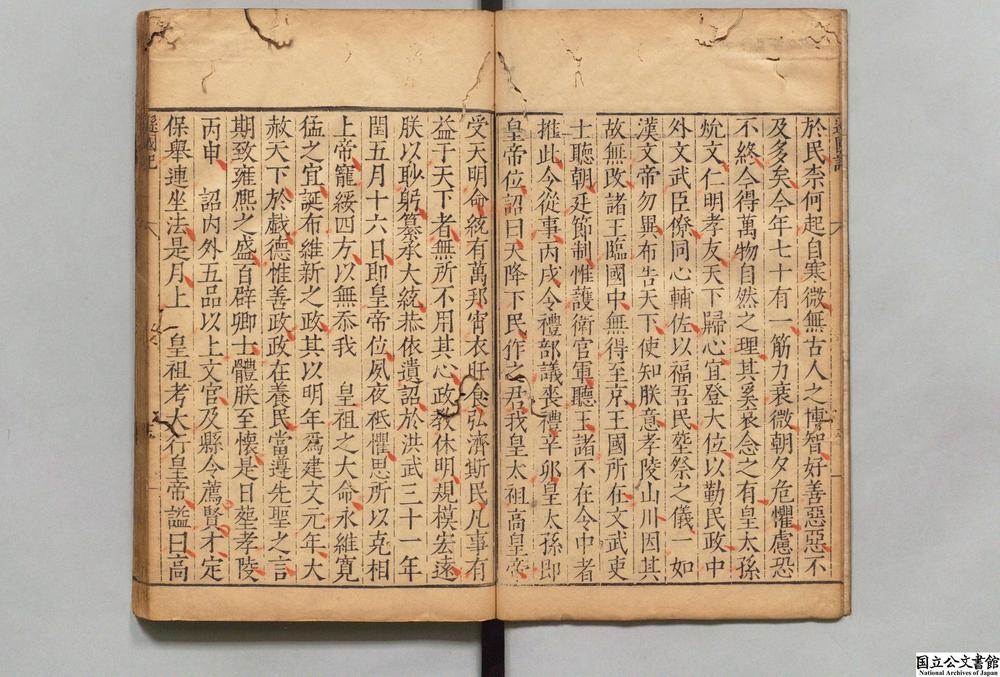 於民柰何起自寒微無古人之博智好善惡惡不
及多矣今年七十有一筋力衰微朝夕危懼慮恐
不終今得萬物自然之理其奚哀念之有皇太孫
允炆文仁明孝友天下歸心宜登大位以勤民政中
外文武臣僚同心輔佐以福吾民塟祭之儀一如
漢文帝勿異布告天下使知朕意孝陵山川因其
故無改諸王臨國中無得至京王國所在文武吏
士聽朝廷節制惟護衛官軍聽王諸不在令中者
推此令從事丙戌令禮部議喪禮辛卯皇太孫即
皇帝位詔曰天降下民作之君我皇太祖高皇帝
受天明命統有萬邦宵衣旰食弘濟斯民凡事有
益于天下者無所不用其心政教休明規模宏遠
朕以眇躬纂承大統恭依遺詔於洪武三十一年
閏五月十六日即皇帝位夙夜祗懼思所以克相
上帝寵綏四方以無忝我　皇祖之大命永維寬
猛之宜誕布維新之政其以明年爲建文元年大
赦天下於戲德惟善政政在養民當遵先聖之言
期致雍熙之盛百辟卿士體朕至懷是日塟孝陵
丙申　詔内外五品以上文官及縣令薦賢才定
保舉連坐法是月上　皇祖考大行皇帝謚曰高
遜國記
国立公文書館
National Archives of Japan